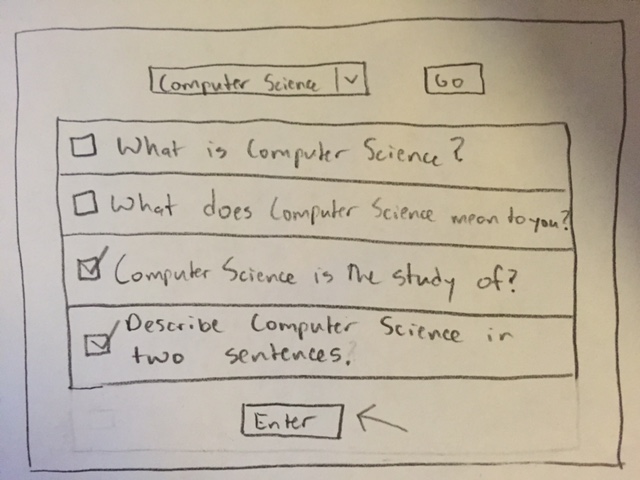 Computer Science
Go
What is Computer Science?
What does Computer Science mean to you?
Computer Science is the study of?
Describe Computer Science in
two sentences.
Enter